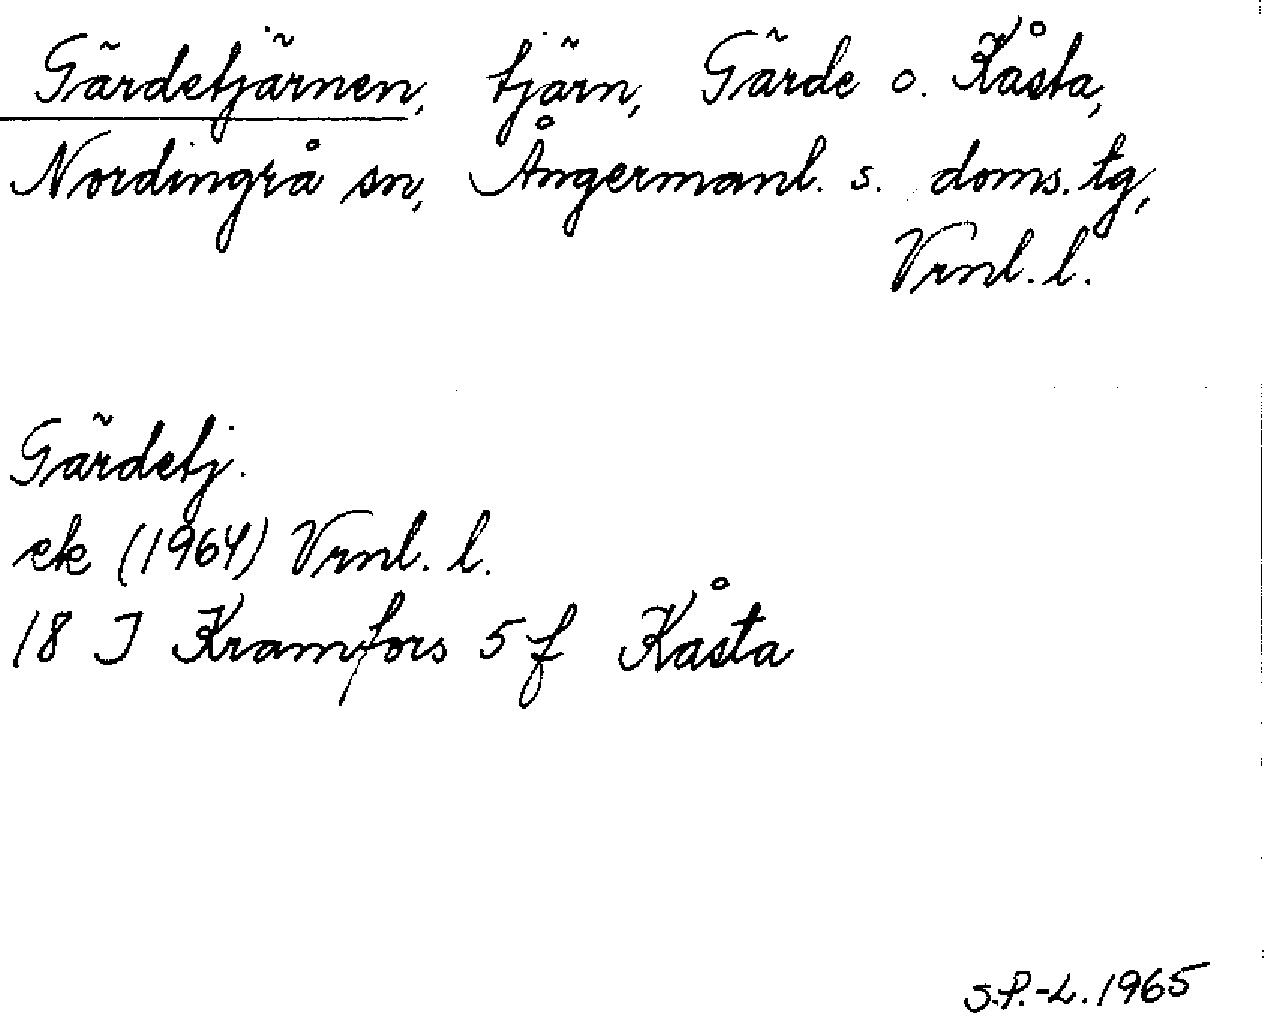 Gärdetjärnen, tjärn, Gärde o. Kåsta,
Nordingrå sn, Ångermanl. s. doms. tg,
Vrnl. l.
Gärdetj.
ek (1964) Vrnl. l.
18 J Kramfors 5 f Kåsta
S.P.-L. 1965